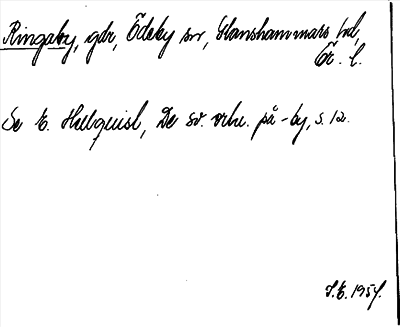 Ringaby, gdr, Ödeby sn, Glanshammars hd,
Ör. l.
Se E. Hellquist, De sv. ortn. på -by, s. 12.
J.E. 1954.